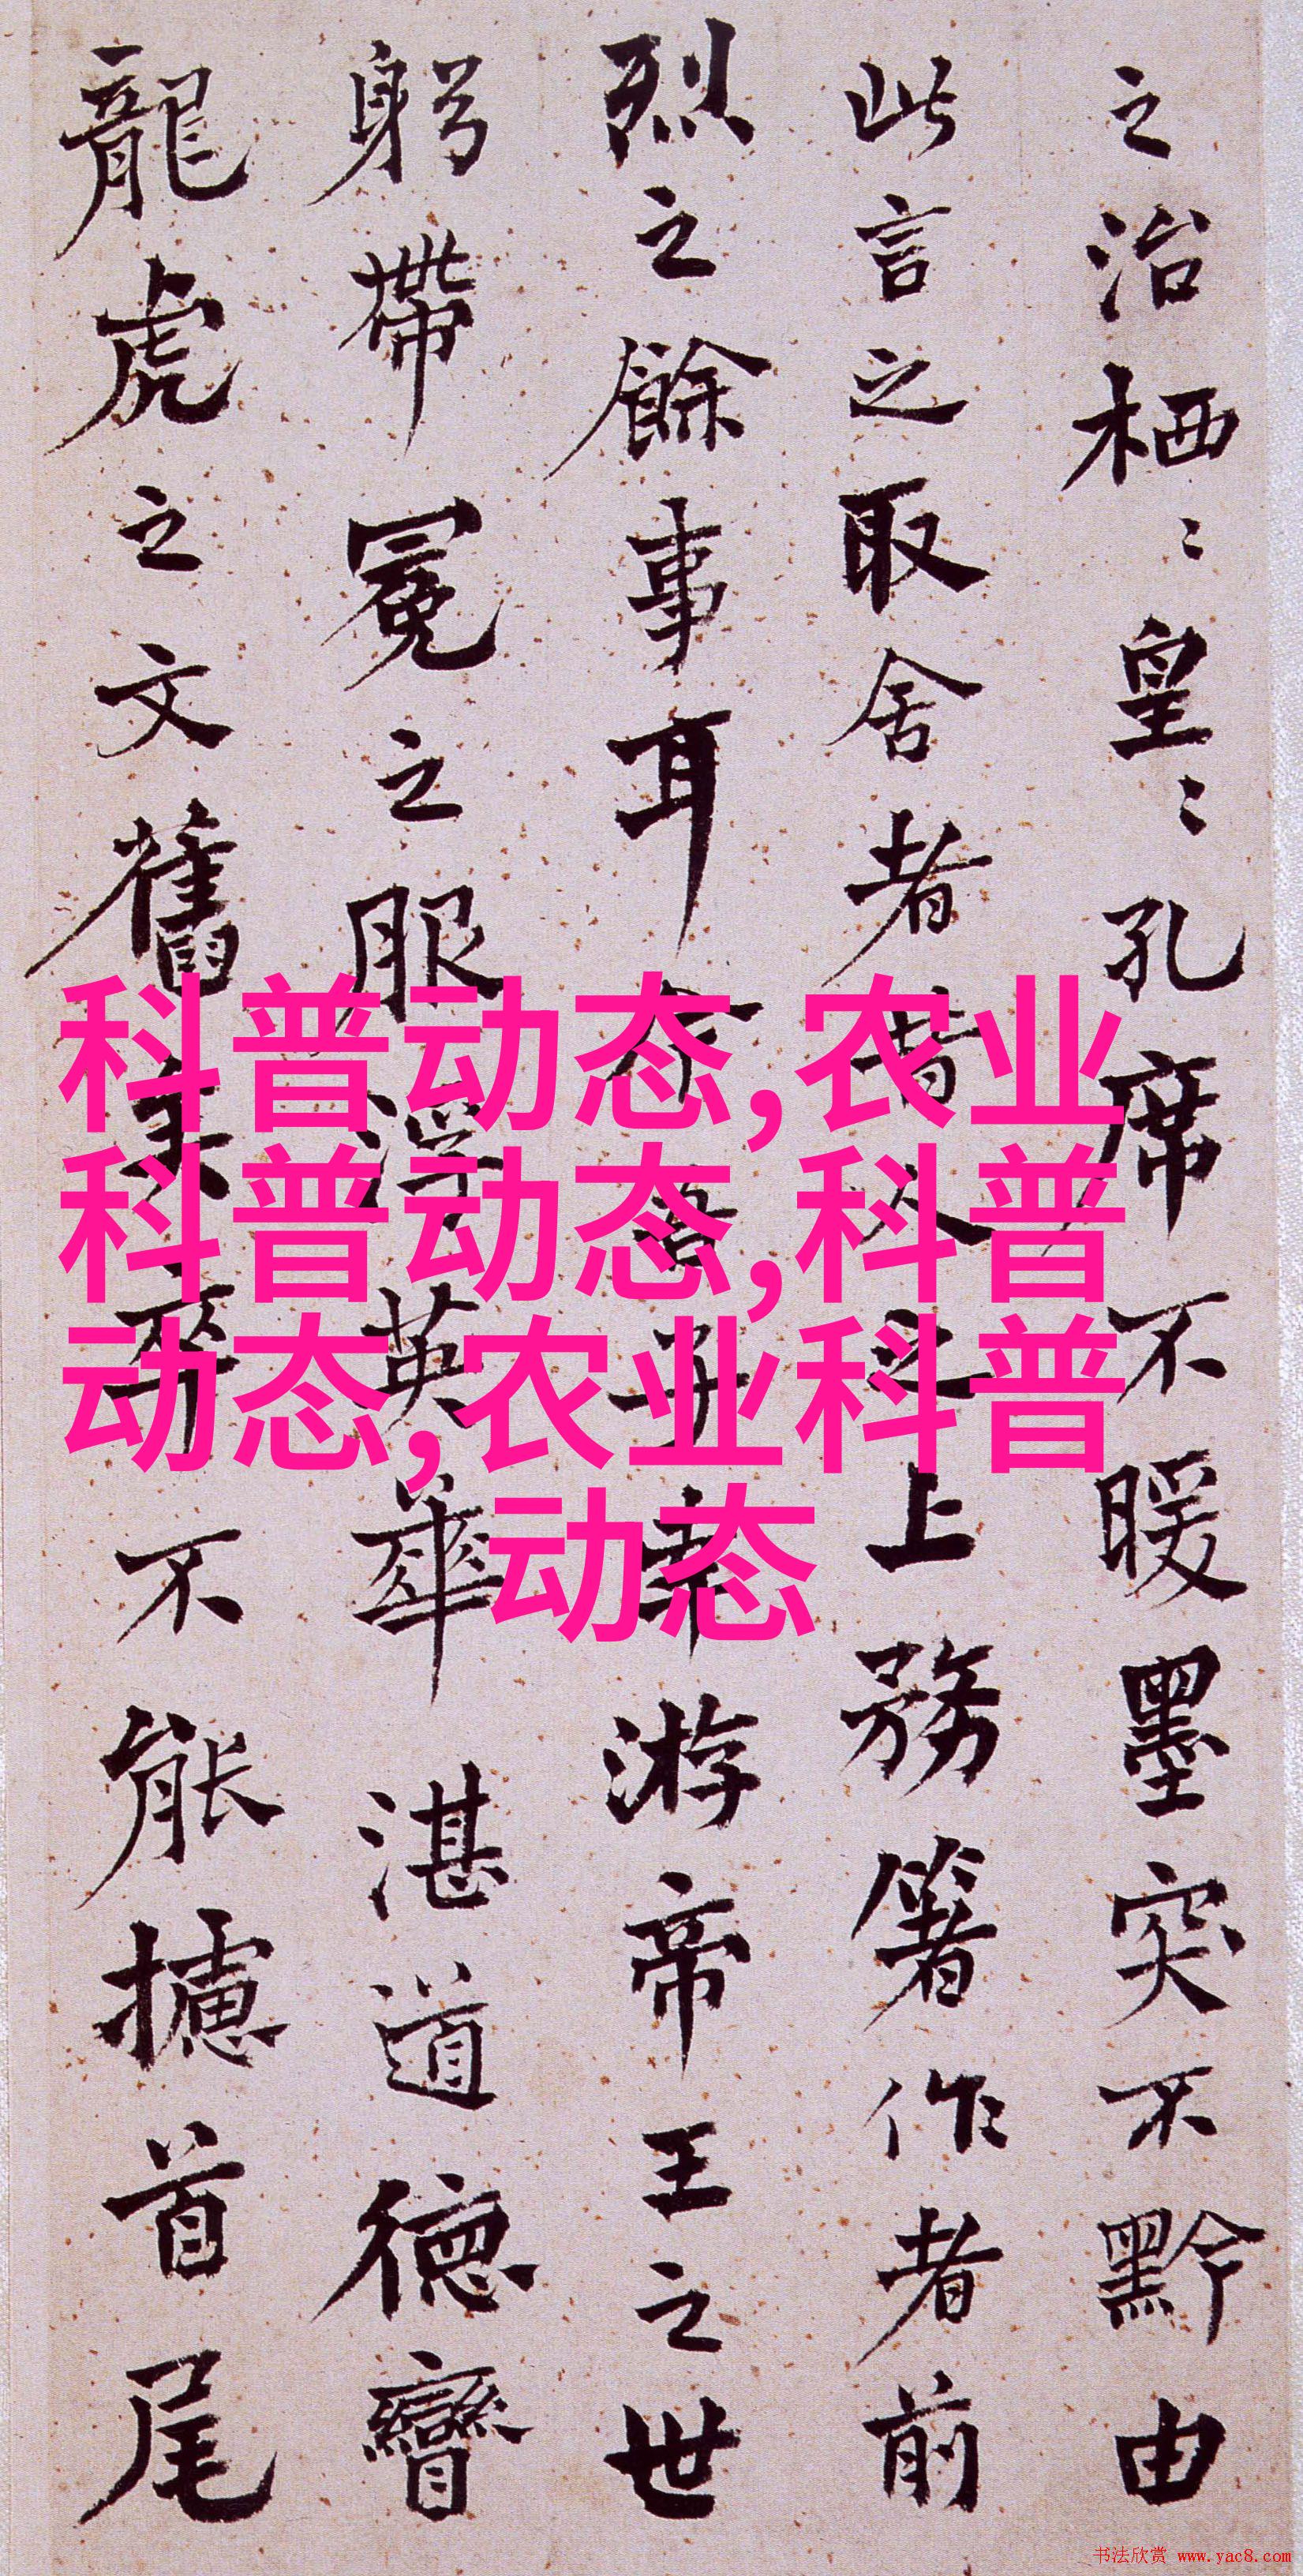 之治栖〻皇〻孔席不暖墨突不黔由
此言之取舍者昔人之上務箸作者前
烈之餘事耳今吾子幸游帝王之世
躬帶冕之服浮英華湛道德矕
龍虎之文舊矣卒不能攄首尾
科普动态,农业
科普动态,科普
动态,农业科普
动态
书法欣赏 www.yac8.com